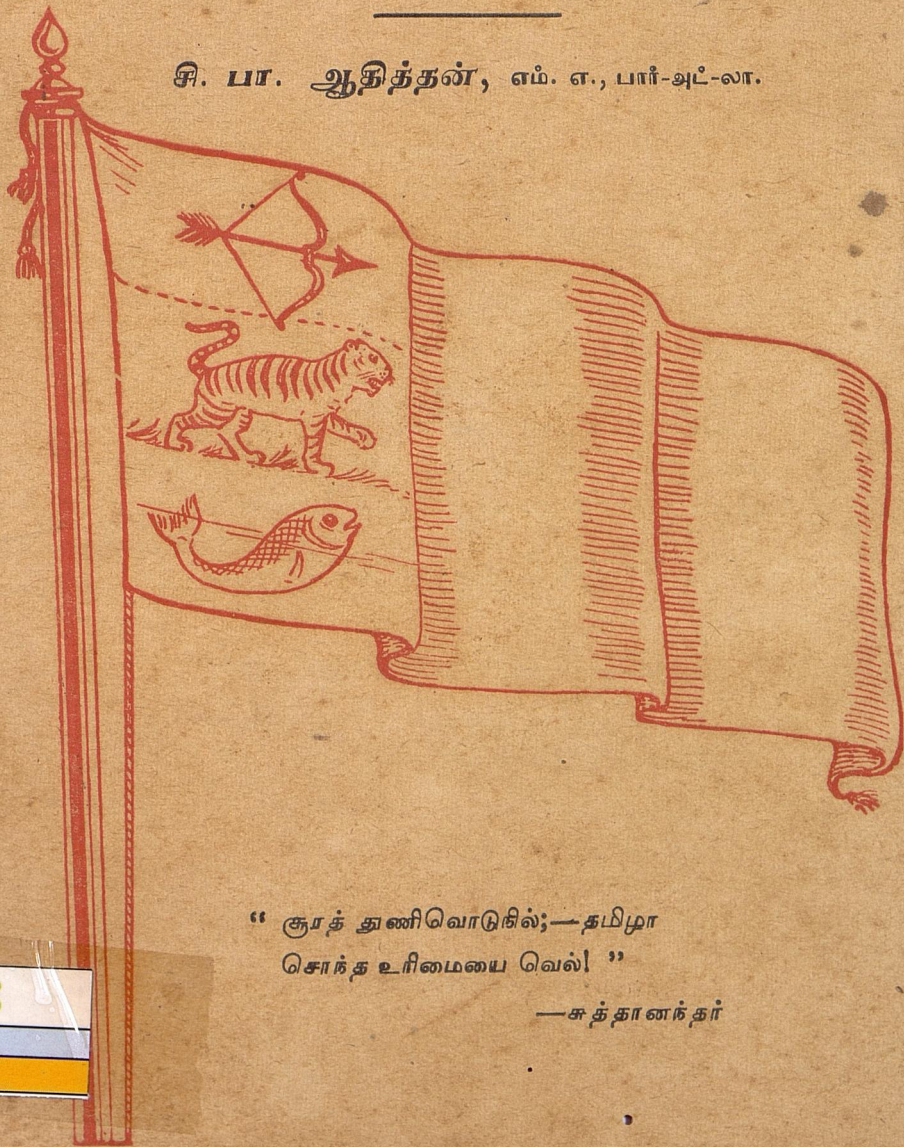 சி. பா. ஆதித்தன், எம். ஏ., பார்-அட்-லா.
“ சூரத் துணிவொடுநில்;—தமிழா
சொந்த உரிமையை வெல்! ”
—சுத்தானந்தர்